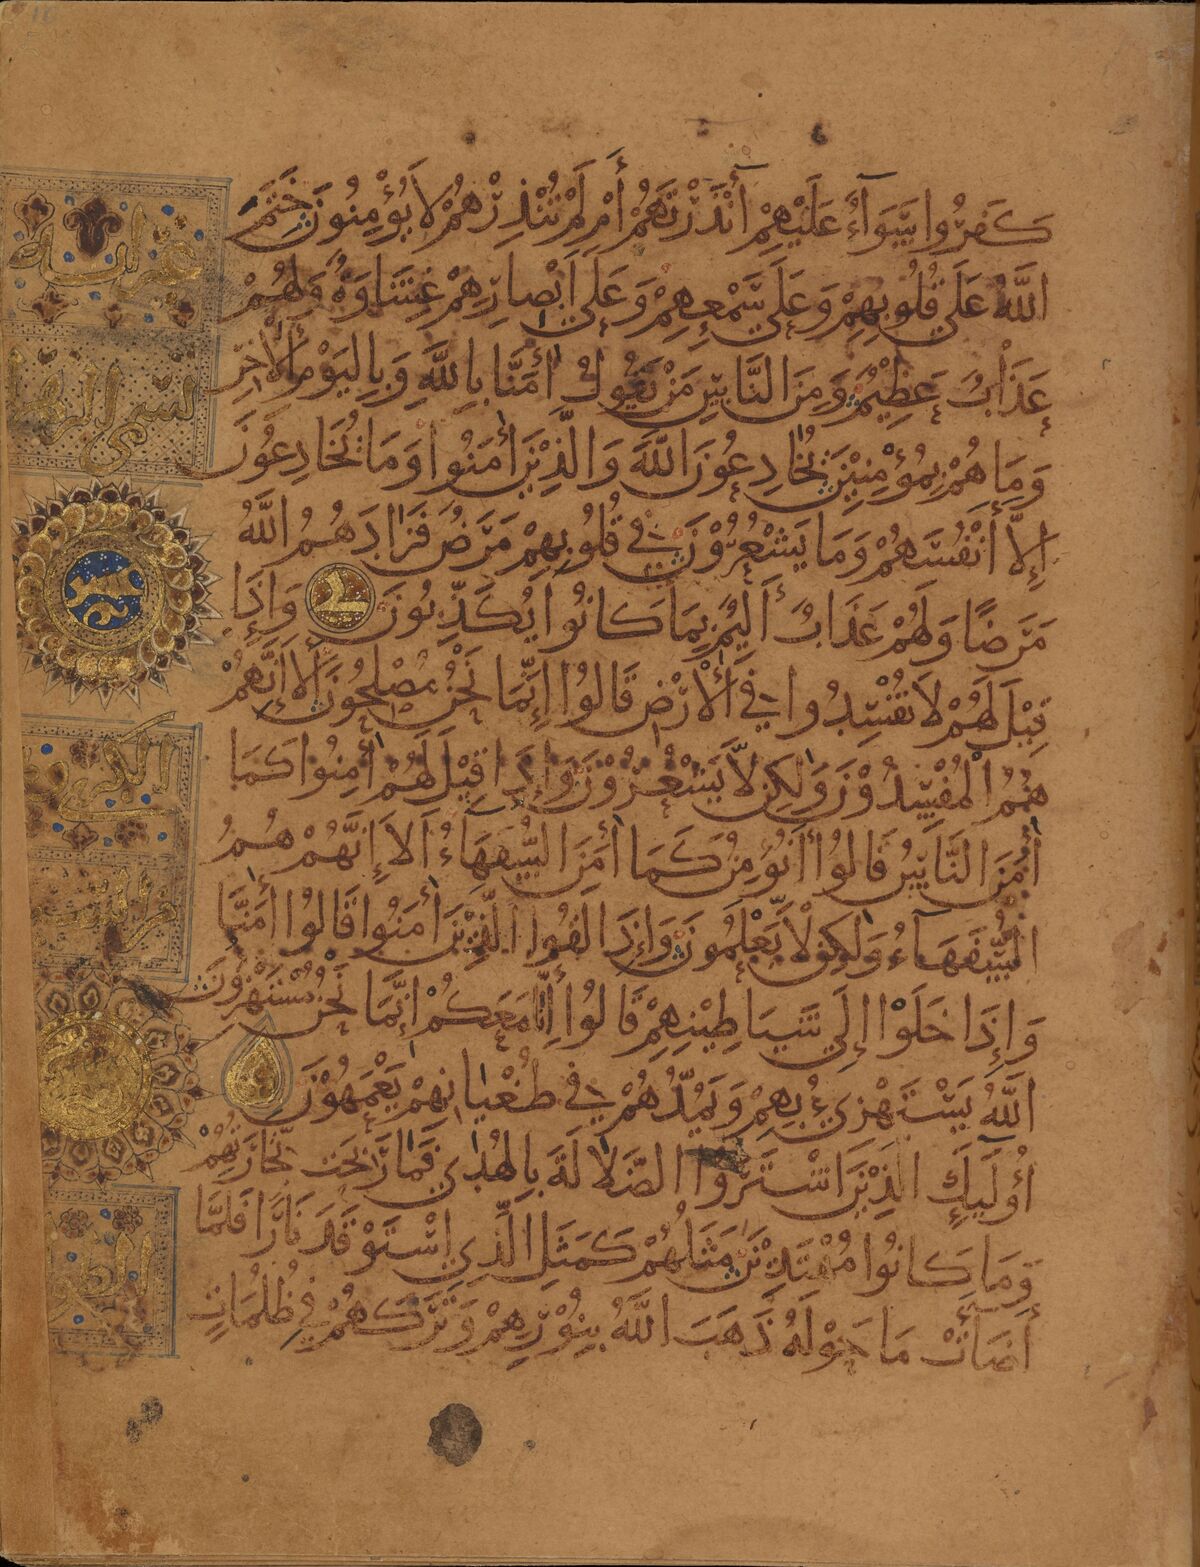 كَفَرُوا سَوَآءٌ عَلَيْهِمْ ءَأَنْذَرْتَهُمْ أَمْ لَمْ تُنْذِرْهُمْ لَا يُؤْمِنُونَ خَتَمَ
اللَّهُ عَلَى قُلُوبِهِمْ وَعَلَى سَمْعِهِمْ وَعَلَى أَبْصَارِهِمْ غِشَاوَةٌ وَلَهُمْ
عَذَابٌ عَظِيمٌ وَمِنَ النَّاسِ مَنْ يَقُولُ أٰمَنَّا بِاللَّهِ وَبِالْيَوْمِ الْأٰخِرِ
وَمَا هُمْ بِمُؤْمِنِينَ يُخَادِعُونَ اللَّهَ وَالَّذِينَ أٰمَنُوا وَمَا يُخَادِعُونَ
إِلَّا أَنْفُسَهُمْ وَمَا يَشْعُرُونَ فِي قُلُوبِهِمْ مَرَضٌ فَزَادَهُمُ اللَّهُ
مَرَضًا وَلَهُمْ عَذَابٌ أَلِيمٌ بِمَا كَانُوا يُكَذِّبُونَ وَإِذَا
قِيلَ لَهُمْ لَا تُفْسِدُوا فِي الْأَرْضِ قَالُوا إِنَّمَا نَحْنُ مُصْلِحُونَ أَلَا إِنَّهُمْ
هُمُ الْمُفْسِدُونَ وَلَكِنْ لَّا يَشْعُرُونَ وَإِذَا قِيلَ لَهُمْ أٰمِنُوا كَمَا
أٰمَنَ النَّاسُ قَالُوا أَنُؤْمِنُ كَمَا أٰمَنَ السُّفَهَاءُ أَلَا إِنَّهُمْ هُمُ
السُّفَهَآءُ وَلَكِنْ لَّا يَعْلَمُونَ وَإِذَا لَقُوا الَّذِينَ أٰمَنُوا قَالُوا أٰمَنَّا
وَإِذَا خَلَوْا إِلَى شَيَاطِينِهِمْ قَالُوا إِنَّا مَعَكُمْ إِنَّمَا نَحْنُ مُسْتَهْزِؤُنَ
اللَّهُ يَسْتَهْزِئُ بِهِمْ وَيَمُدُّهُمْ فِي طُغْيَانِهِمْ يَعْمَهُونَ
أُولَٰٓئِكَ الَّذِينَ اشْتَرَوُا الضَّلَالَةَ بِالْهُدَى فَمَا رَبِحَتْ تِجَارَتُهُمْ
وَمَا كَانُوا مُهْتَدِينَ مَثَلُهُمْ كَمَثَلِ الَّذِي اسْتَوْقَدَ نَارًا فَلَمَّا
أَضَآءَتْ مَا حَوْلَهُ ذَهَبَ اللَّهُ بِنُورِهِمْ وَتَرَكَهُمْ فِي ظُلُمَاتٍ